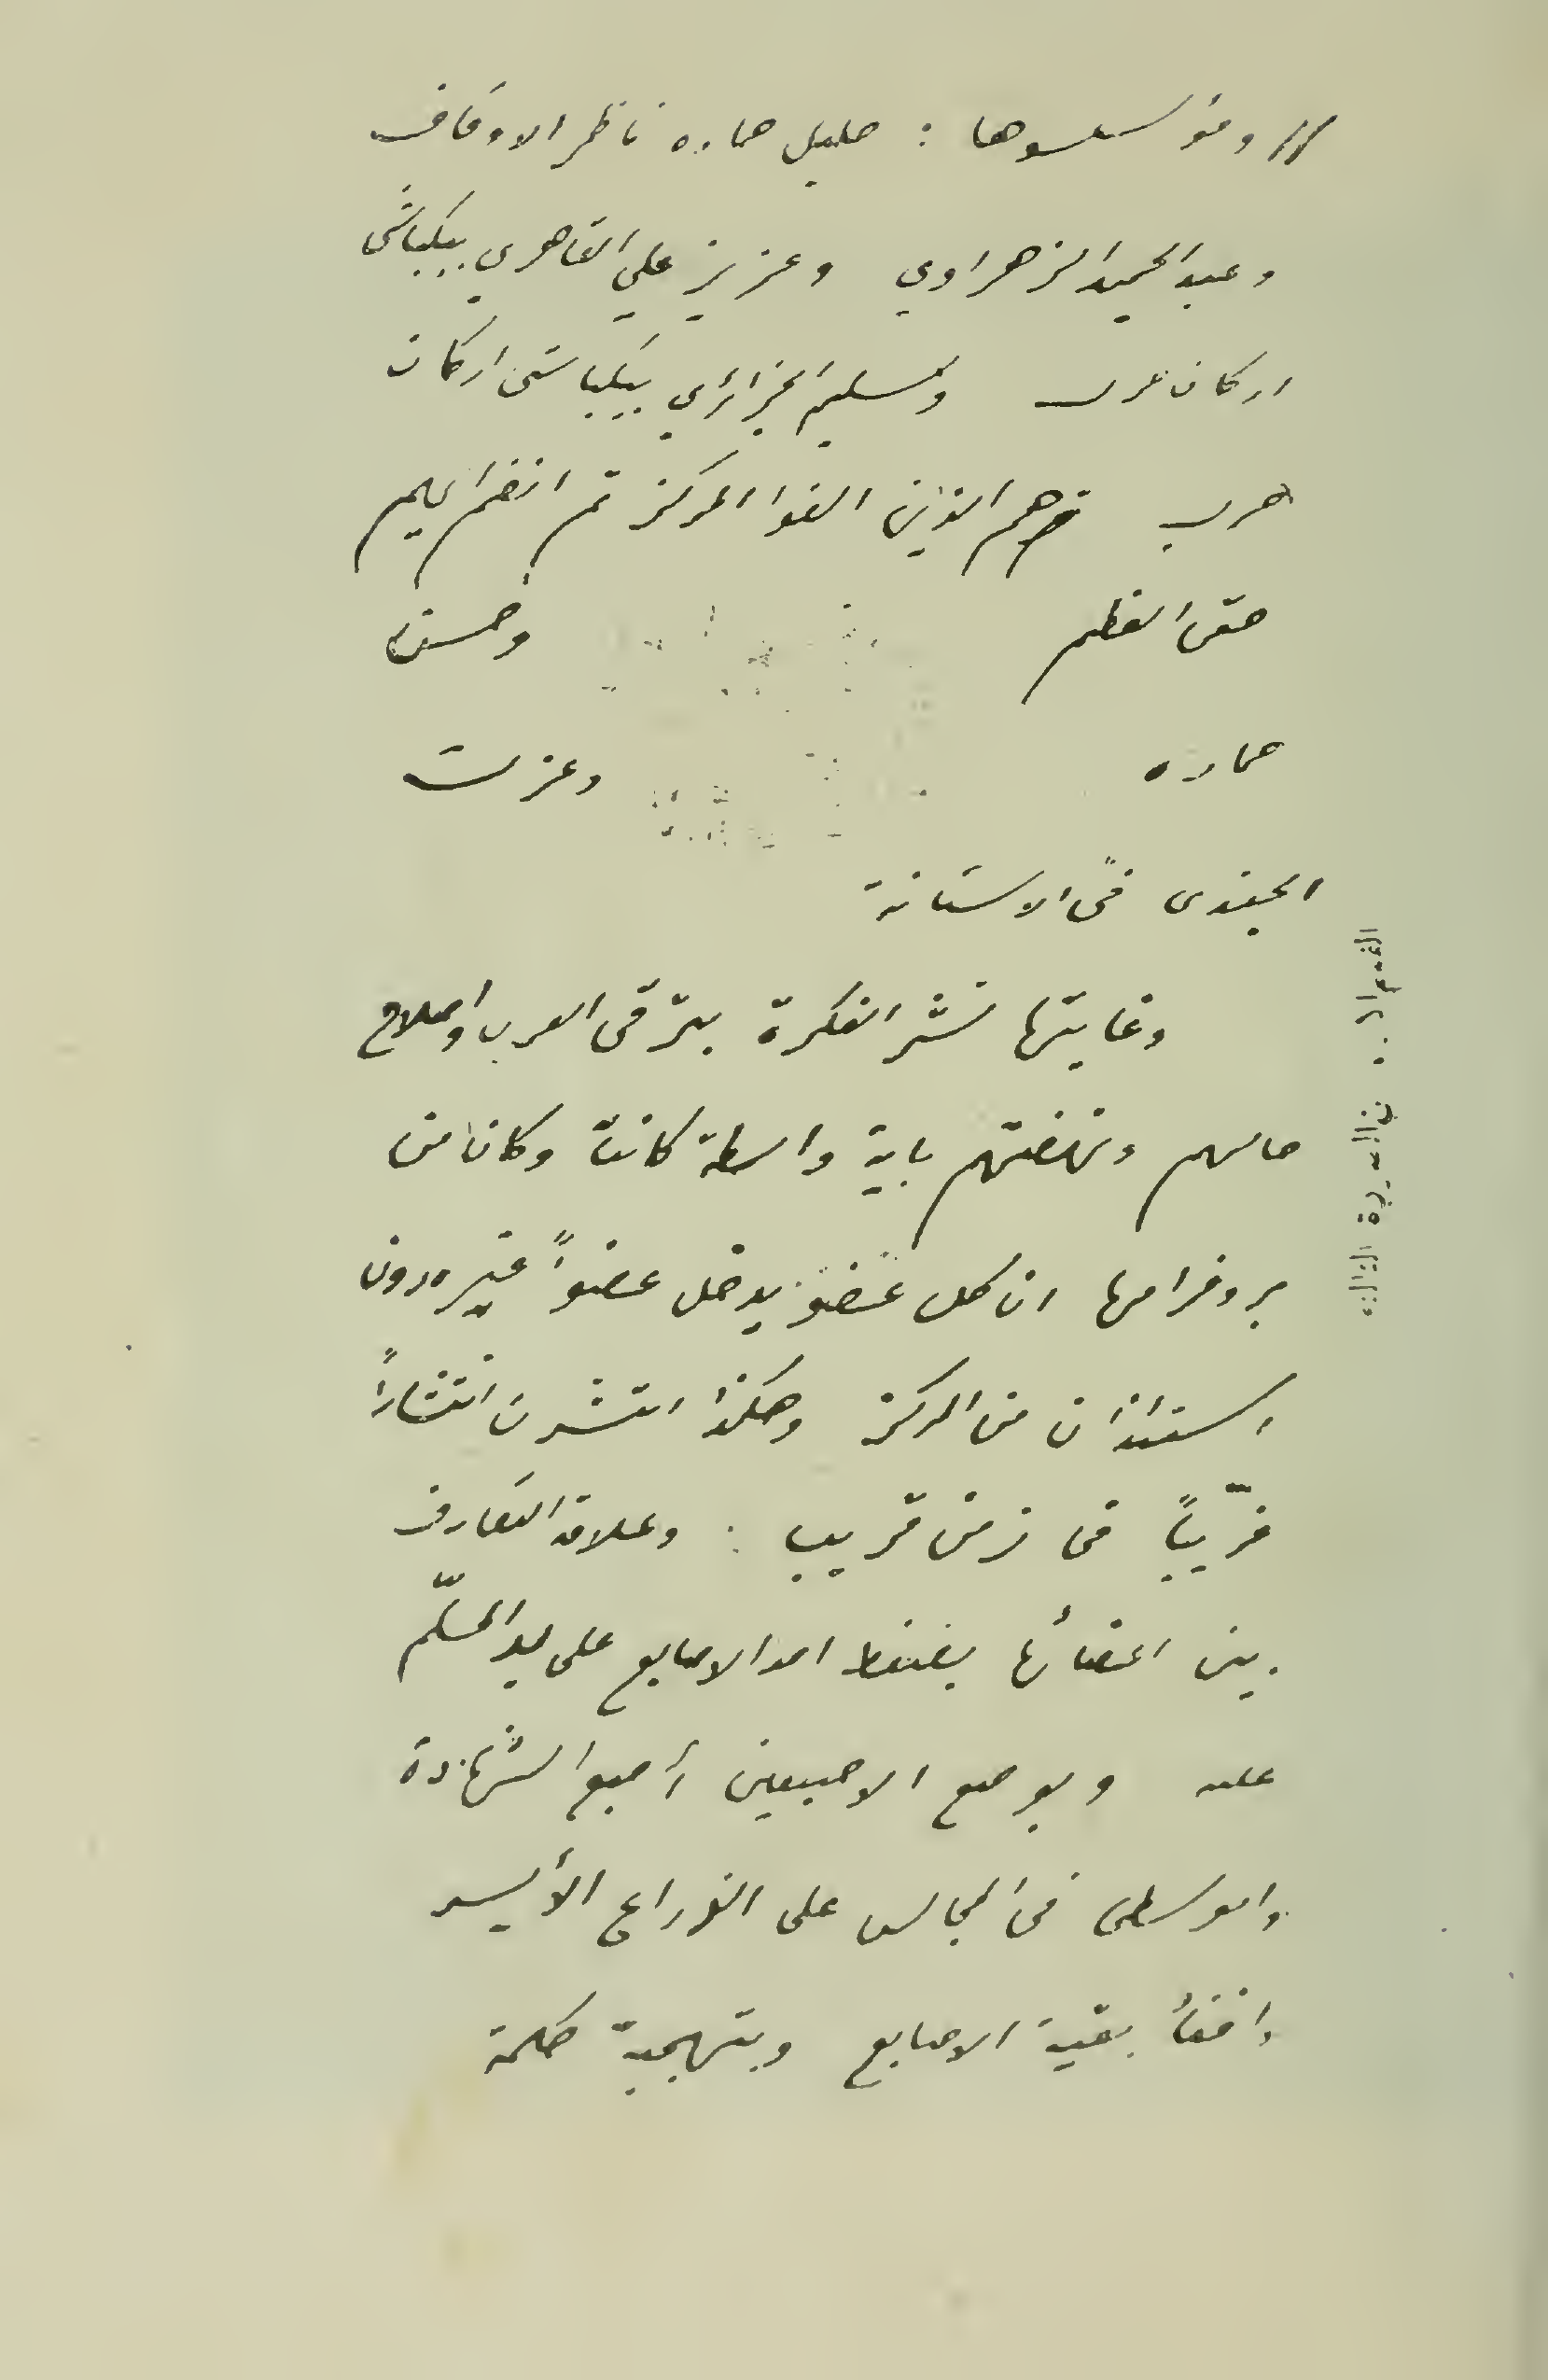 // ومؤسسوها : خليل حماده ناظر الاوقاف
وعبد الحميد الزهراوي وعزيز علي القاهري بيكباشى
اركان حرب وسليم الجزائري بيكباشى اركان
حرب وهم الذين الفوا المركز ثم انضم اليهم
حقى العظم وحسن
حماده وعزت
الجندى فى الاستانة
وغايتها نشر الفكرة بترقى العرب واصلاح
حالهم ونهضتهم باية واسطة كانت وكان من
بروغرامها ان كل عضو يدخل عضواً غيره دون
استئذان من المركز وهكذا انتشرت انتشاراً
غريباً فى زمن قريب . وعلامة التعارف
بين اعضائها بضغط احد الاصابع على يد المسلّم
عليه وبوضع الاصبعين أصبع الشهادة
والوسطى فى المجالس على الذراع الأيسر
بقية الاصابع وبتهجية كلمة